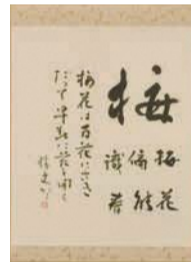 梅
梅花
偏能
識春
梅花は百花にさき
だって早春に花を開く